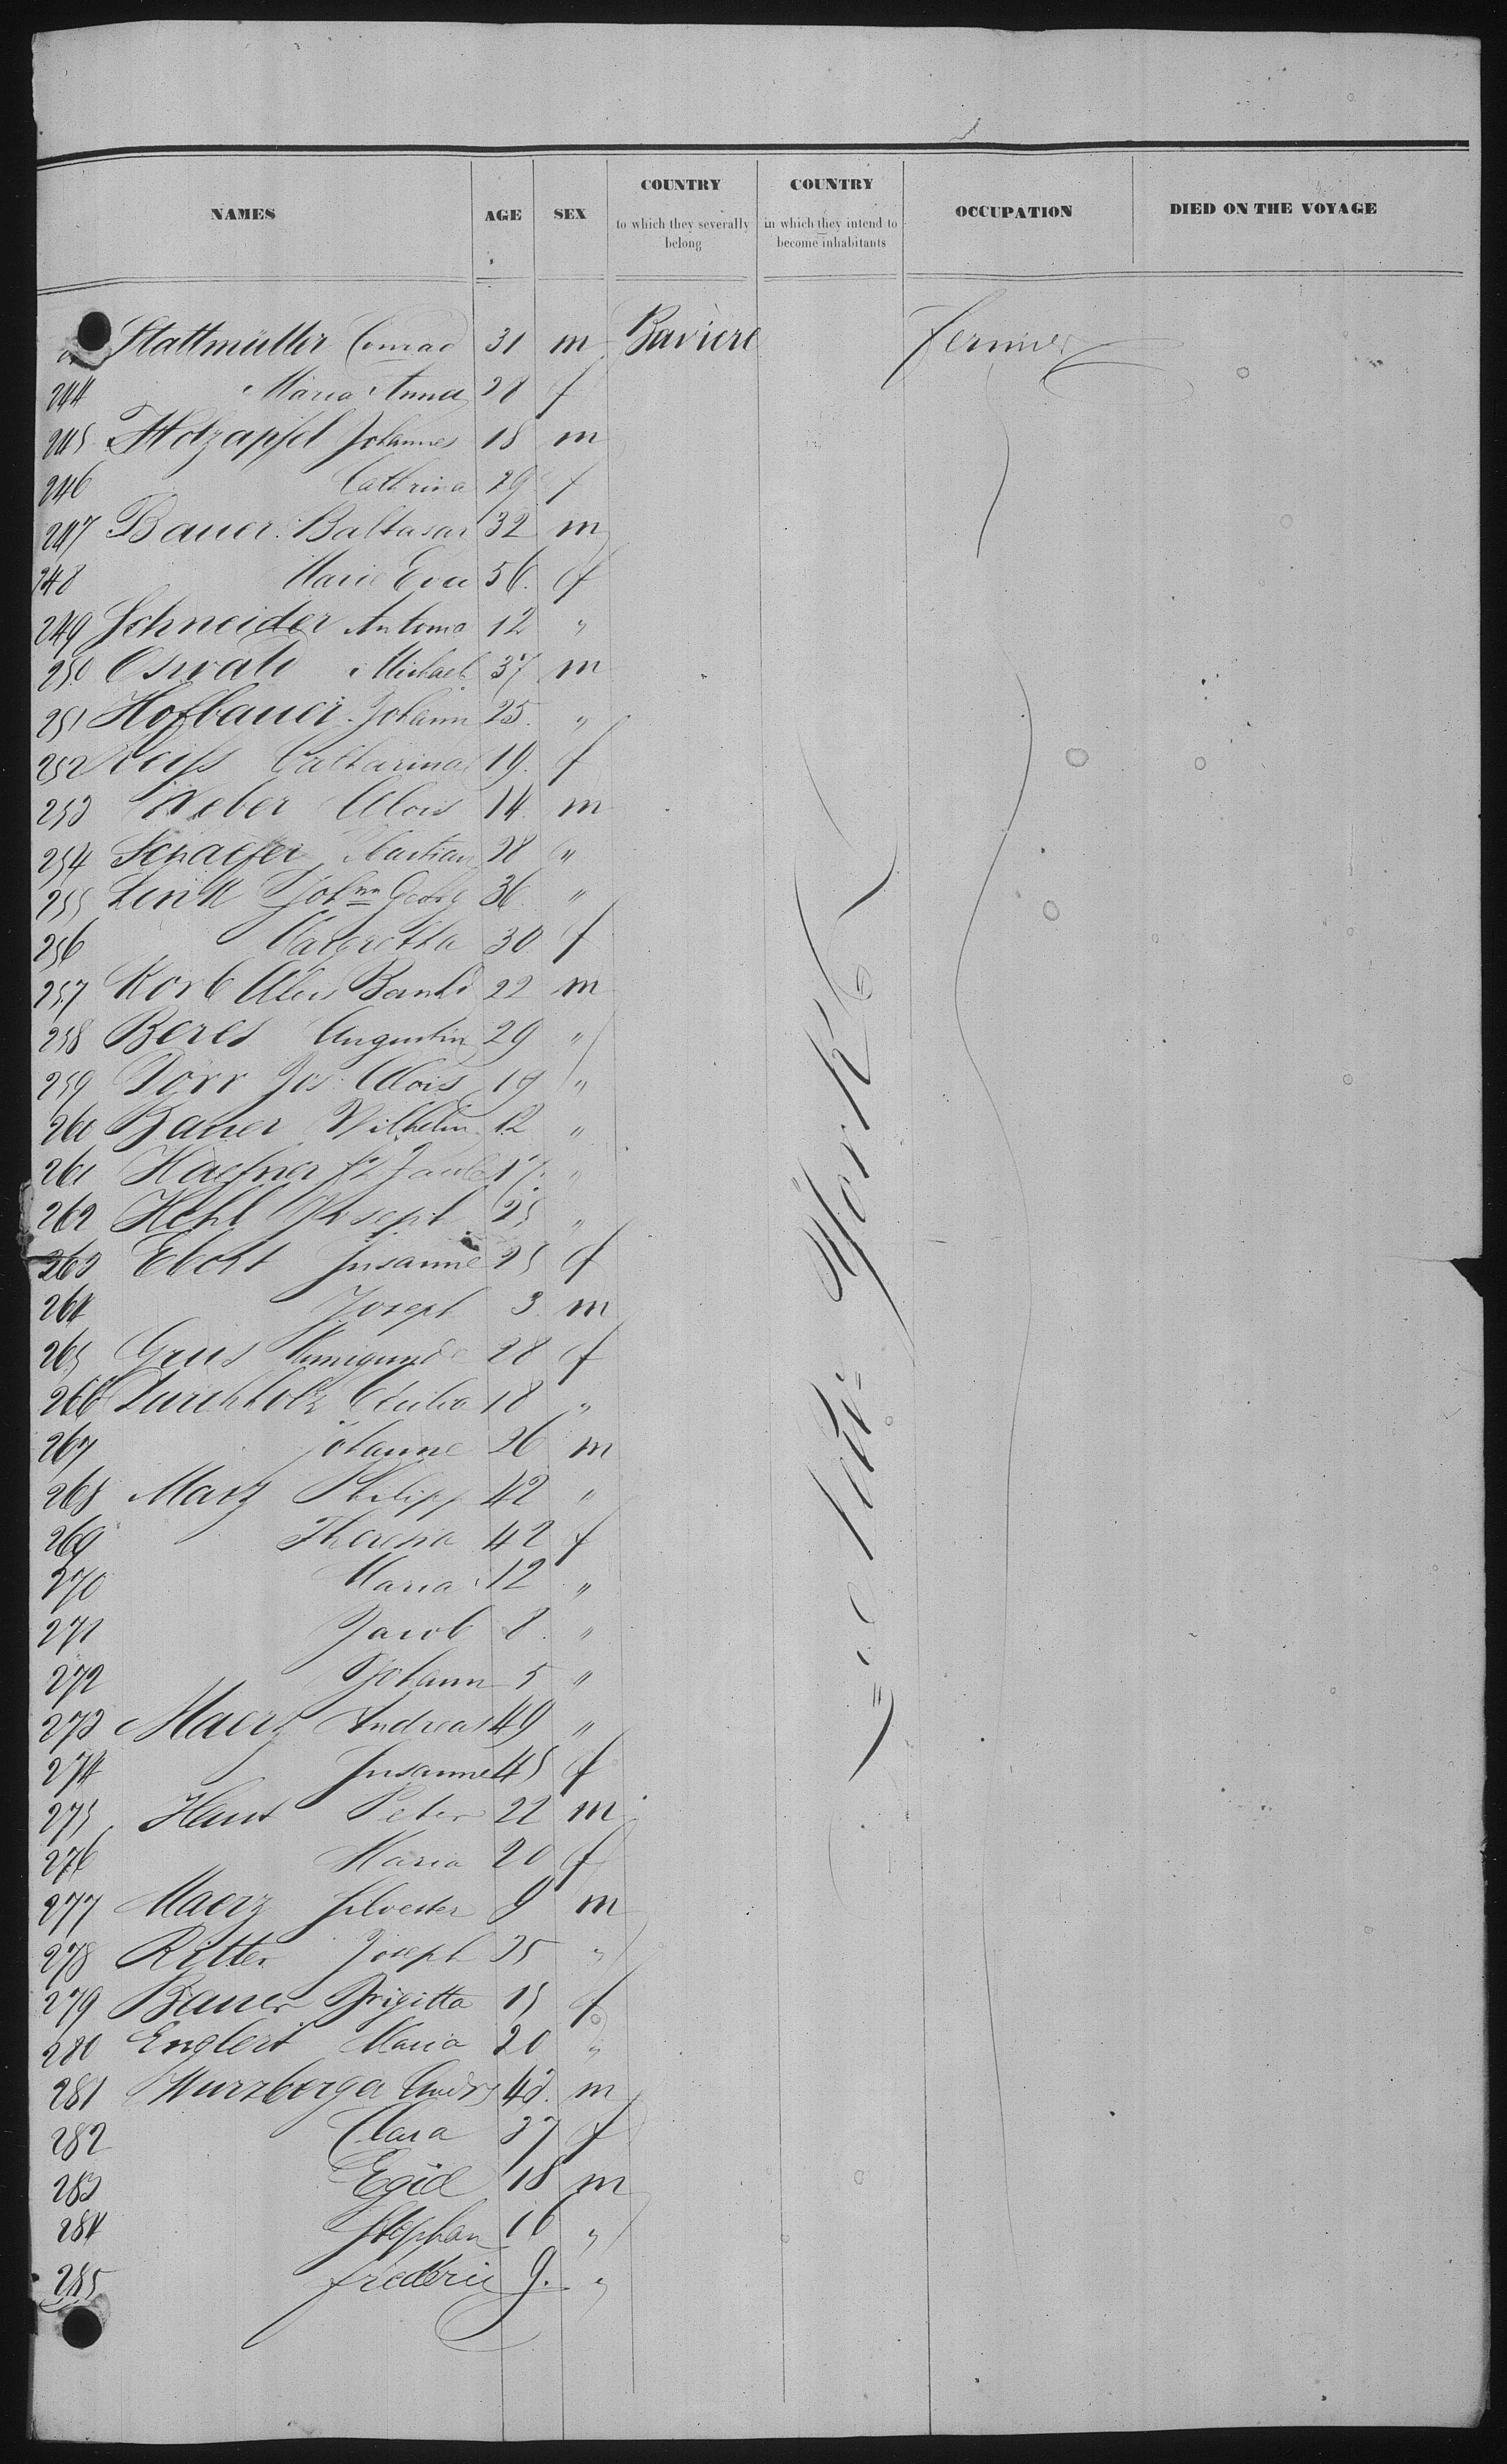 NAMES AGE SEX COUNTRY to which they severally belong COUNTRY in which they intend to become inhabitants OCCUPATION DIED ON THE VOYAGE
Stattmüller Conrad 31 m Baviere fermier
244 Maria Anna 28 f
245 Holzapfel Johannes 18 m
246 Cathrina 29 f
247 Bauer Baltasar 32 m
248 Marie Eva 56 f
249 Schneider Antonia 12 "
250 Oswald Michael 37 m
251 Hofbauer Johann 25 "
252 Catharina 19 f
253 Weber Alois 14 m
254 Schaefer 28 "
255 Link Johnn Georg 36 "
256 Margretha 30 f
257 Korb Alois 22 m
258 Beres Augustin 29 "
259 Dörr Jos Alois 19 "
260 Bauer Wilhelm 12 "
261 Haefner 17 "
262 Hehl Joseph 25 "
263 Ebert Susanne 25 f
264 Joseph 3 m
265 Kunigunde 28 f
266 Durchholz Cecilia 18 "
267 Johanne 26 m
268 Marz Philipp 42 "
269 Theresia 42 f
270 Maria 12 "
271 Jacob 8 "
272 Johann 5 "
273 Maerz Andreas 49 "
274 Susanne 45 f
275 Peter 22 m
276 Maria 20 f
277 Maerz Silvester 9 m
278 Ritter Joseph 25 "
279 Bauer Brigitta 15 f
280 Englert Maria 20 "
281 Wurzberger Andrs 43 m
282 Clara 37 f
283 Egid 18 m
284 Stephan 16 "
285 Frederic 9 "
York